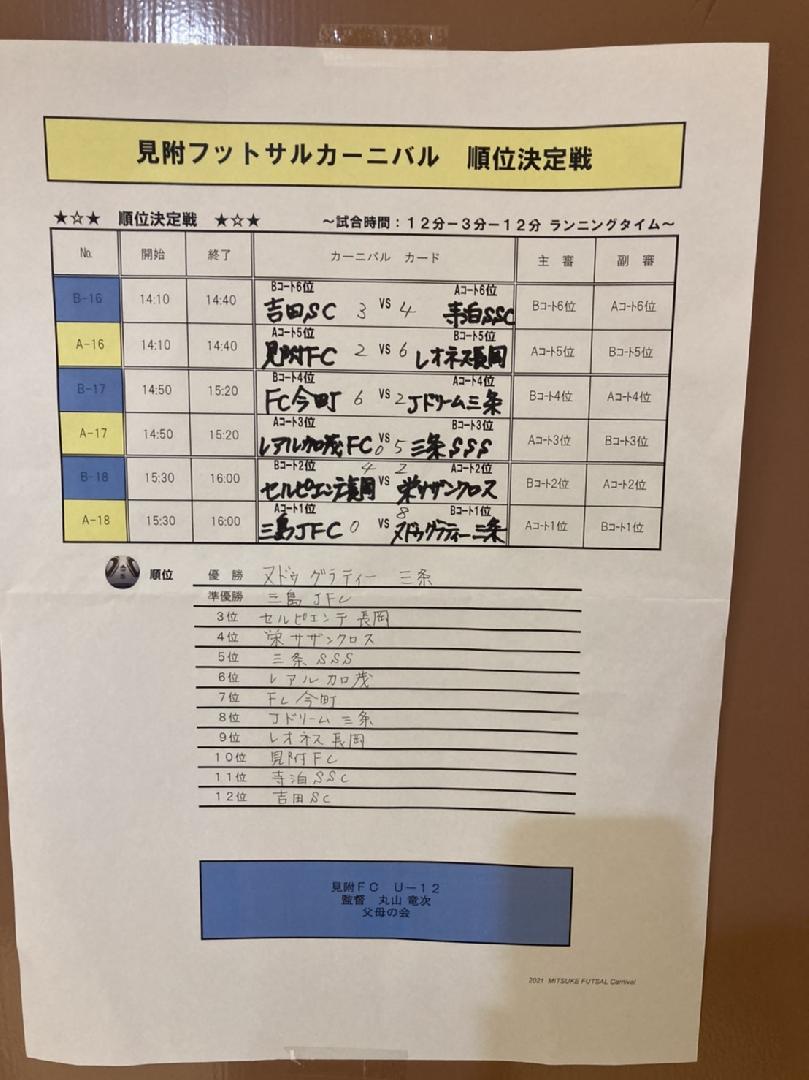 見附フットサルカーニバル 順位決定戦
★☆★ 順位決定戦 ★☆★ ～試合時間：１２分－３分－１２分 ランニングタイム～
No. 開始 終了 カーニバル カード 主審 副審
Bコート6位 Aコート6位
B-16 14:10 14:40 吉田SC 3 VS 4 寺泊SSC Bコート6位 Aコート6位
Aコート5位 Bコート5位
A-16 14:10 14:40 見附FC 2 VS 6 レオネス長岡 Aコート5位 Bコート5位
Bコート4位 Aコート4位
B-17 14:50 15:20 FC今町 6 VS 2 Jドリーム三条 Bコート4位 Aコート4位
Aコート3位 Bコート3位
A-17 14:50 15:20 レアル加茂FC 0 VS 5 三条SSS Aコート3位 Bコート3位
Bコート2位 Aコート2位
B-18 15:30 16:00 セルピエンテ長岡 4 VS 2 栄サザンクロス Bコート2位 Aコート2位
Aコート1位 Bコート1位
A-18 15:30 16:00 三島JFC 0 VS 8 ヌドゥグラティー三条 Aコート1位 Bコート1位
順位 優勝 ヌドゥグラティー 三条
準優勝 三島 JFC
3位 セルピエンテ長岡
4位 栄サザンクロス
5位 三条 SSS
6位 レアル加茂
7位 FC今町
8位 Jドリーム 三条
9位 レオネス長岡
10位 見附FC
11位 寺泊SSC
12位 吉田SC
見附ＦＣ Ｕ－１２
監督 丸山 竜次
父母の会
2021 MITSUKE FUTSAL Carnival